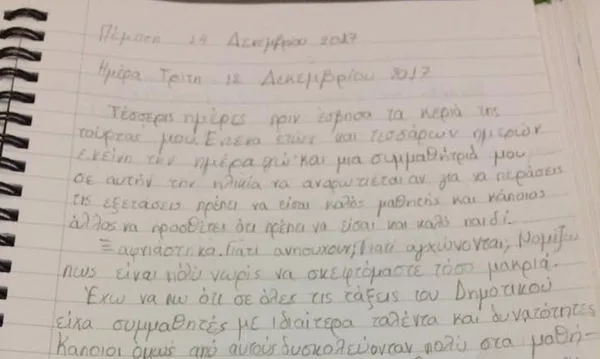 Πέμπτη 14 Δεκεμβρίου 2017
Ημέρα Τρίτη 12 Δεκεμβρίου 2017
Τέσσερις ημέρες πριν έσβησα τα κεριά της
τούρτας μου. Έντεκα ετών και τεσσάρων ημερών
εκείνη την ημέρα και μια συμμαθήτριά μου
σε αυτήν την ηλικία να αναρωτιέται αν για να περάσεις
τις εξετάσεις πρέπει να είσαι καλός μαθητής και κάποιος
άλλος να προσθέτει ότι πρέπει να είσαι και καλό παιδί.
Ξαφνιάστηκα. Γιατί ανησυχούν; Γιατί αγχώνονται; Νομίζω
πως είναι πολύ νωρίς να σκεφτόμαστε τόσο μακριά.
Έχω να πω ότι σε όλες τις τάξεις του Δημοτικού
είχα συμμαθητές με ιδιαίτερα ταλέντα και δυνατότητες
Κάποιοι όμως από αυτούς δυσκολεύονταν πολύ στα μαθή-